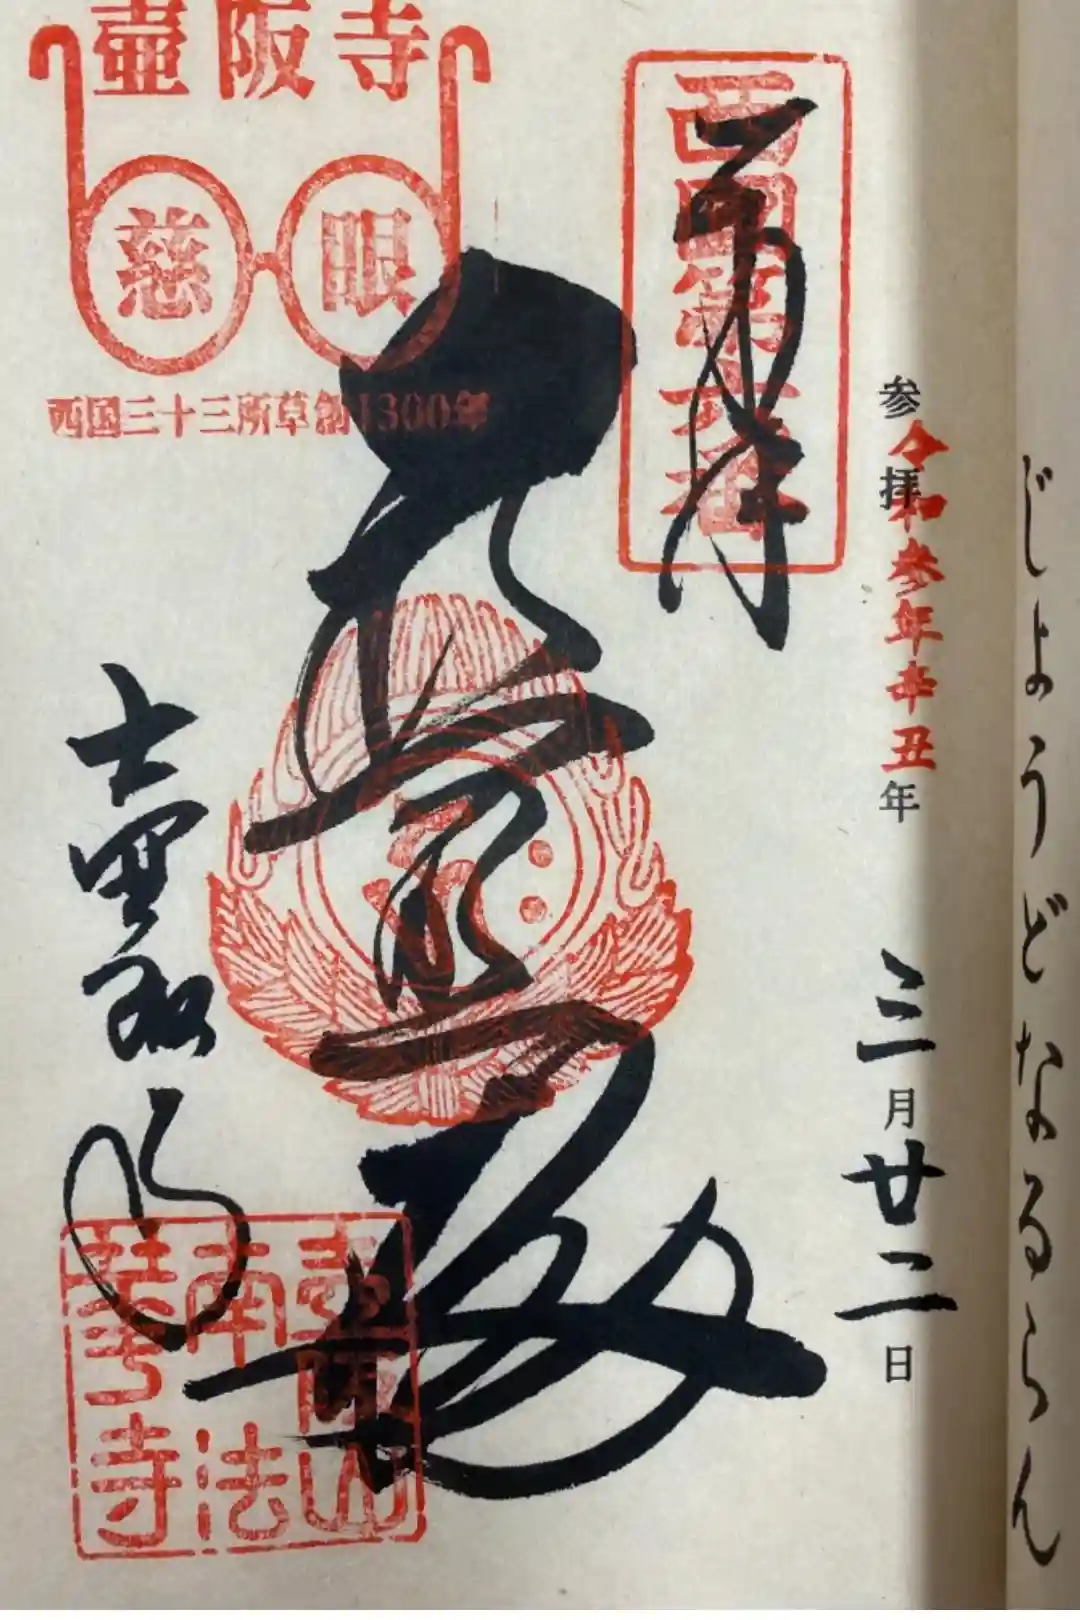 じようどなるらん
参拝 令和参年辛丑年 三月廿二日
奉拝
西国第六番
普照殿
壷阪寺
慈眼
西国三十三所草創1300年
壷阪山
南法
華寺